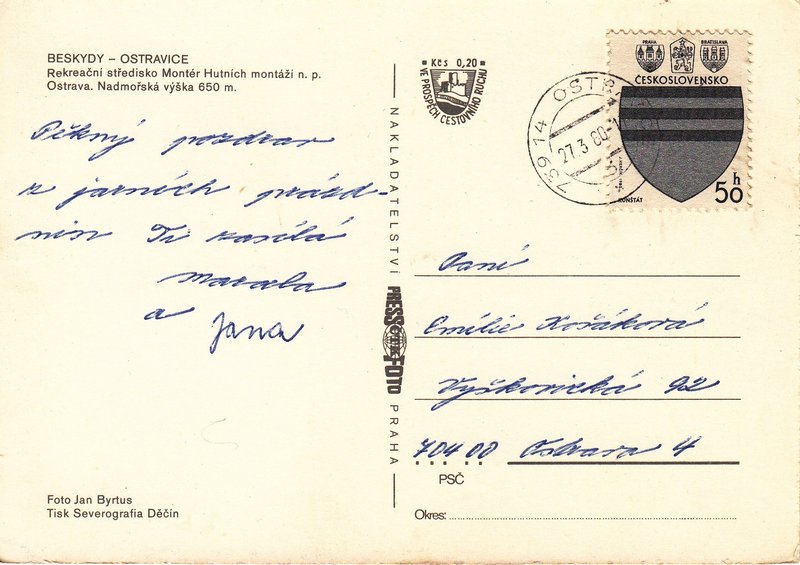 BESKYDY – OSTRAVICE
Rekreační středisko Montér Hutních montáží n. p.
Ostrava. Nadmořská výška 650 m.
Pěkný pozdrav
z jarních prázd-
nin Ti zasílá
a
Jana
Foto Jan Byrtus
Tisk Severografia Děčín
NAKLADATELSTVÍ
PRESSFOTO
ČTK
PRAHA
Kčs 0,20
VE PROSPĚCH CESTOVNÍHO RUCHU
739 14 OSTR
27.3.80
PRAHA
BRATISLAVA
ČESKOSLOVENSKO
KUNŠTÁT
50 h
Paní
Emílie Košáková
Vyškovická 92
704 00 Ostrava 4
PSČ
Okres: